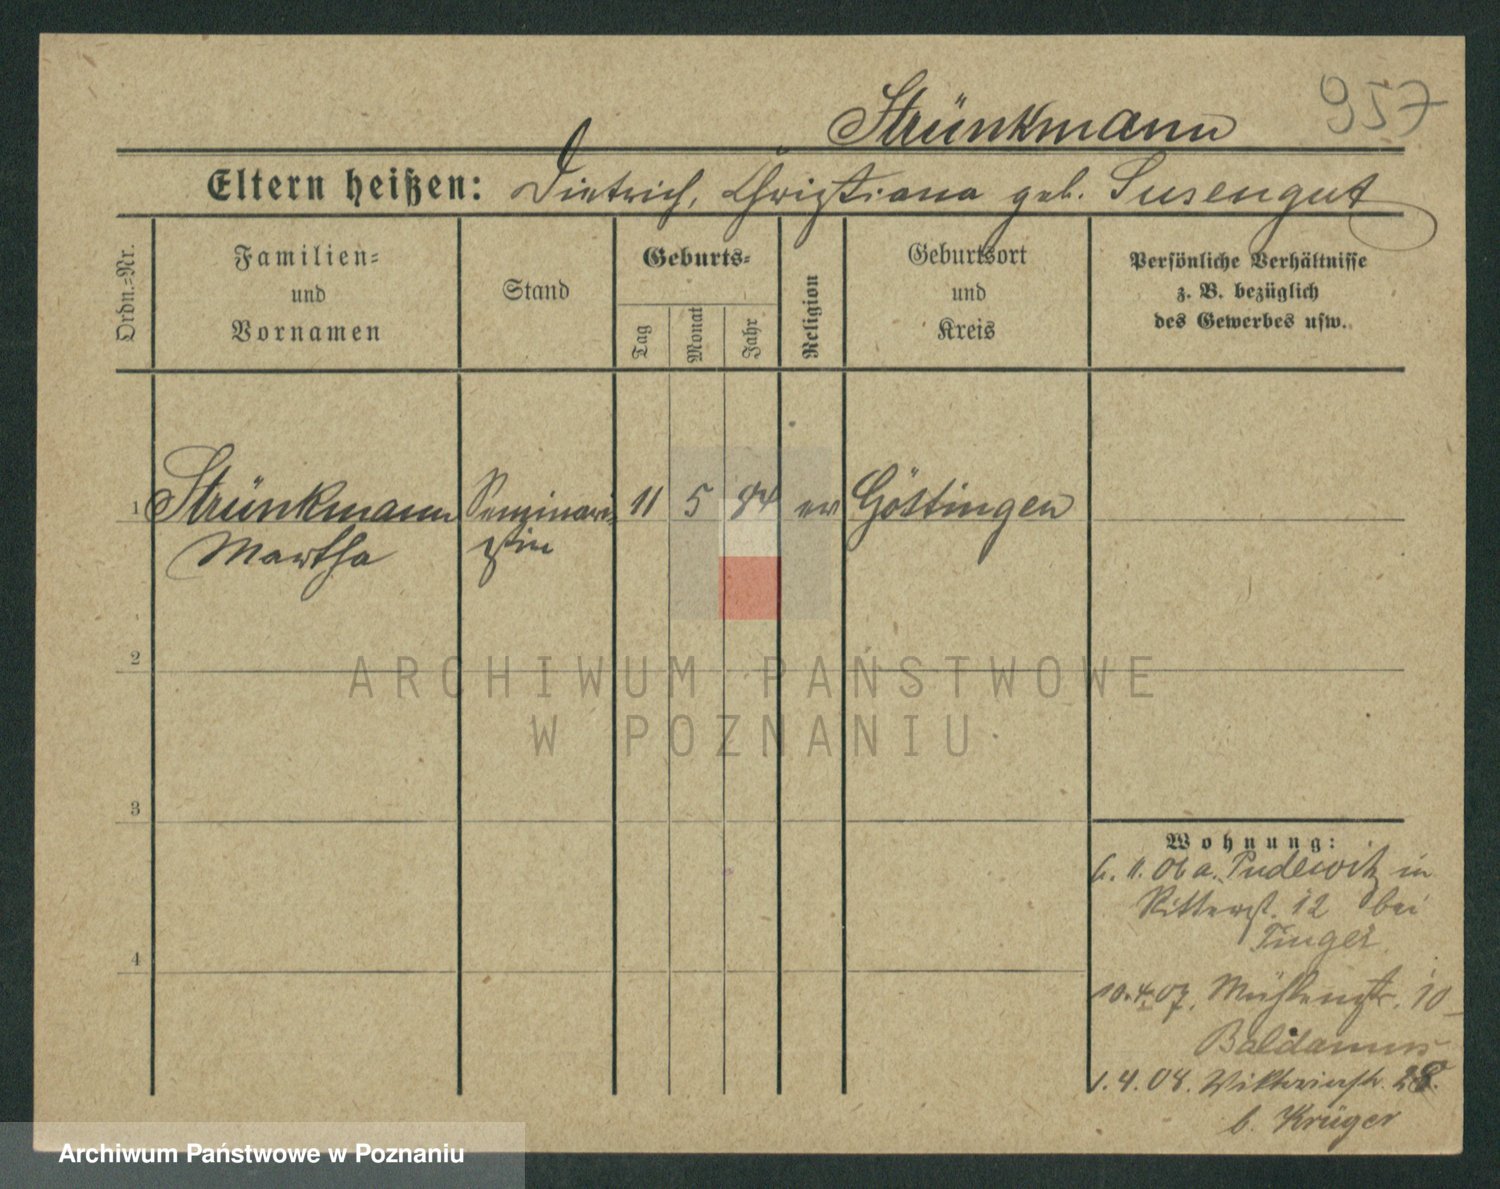 957
Strünkmann
Eltern heißen: Dietrich, Christiana geb. Susengut
Ordn.=Nr.
Familien=
und
Vornamen
Stand
Geburts=
Tag
Monat
Jahr
Religion
Geburtsort
und
Kreis
Persönliche Verhältnisse
z. B. bezüglich
des Gewerbes usw.
1 Strünkmann Seminari- 11 5 84 ev Göttingen
Martha stin
2
3
4
Wohnung:
6. 11. 06 a. Pudewitz in
Ritterst. 12 bei
Tinger
10.4.07. Mühlenstr. 10
Baldamus
1.4.08. Viktoriastr. 28.
b. Krüger
ARCHIWUM PAŃSTWOWE
W POZNANIU
Archiwum Państwowe w Poznaniu